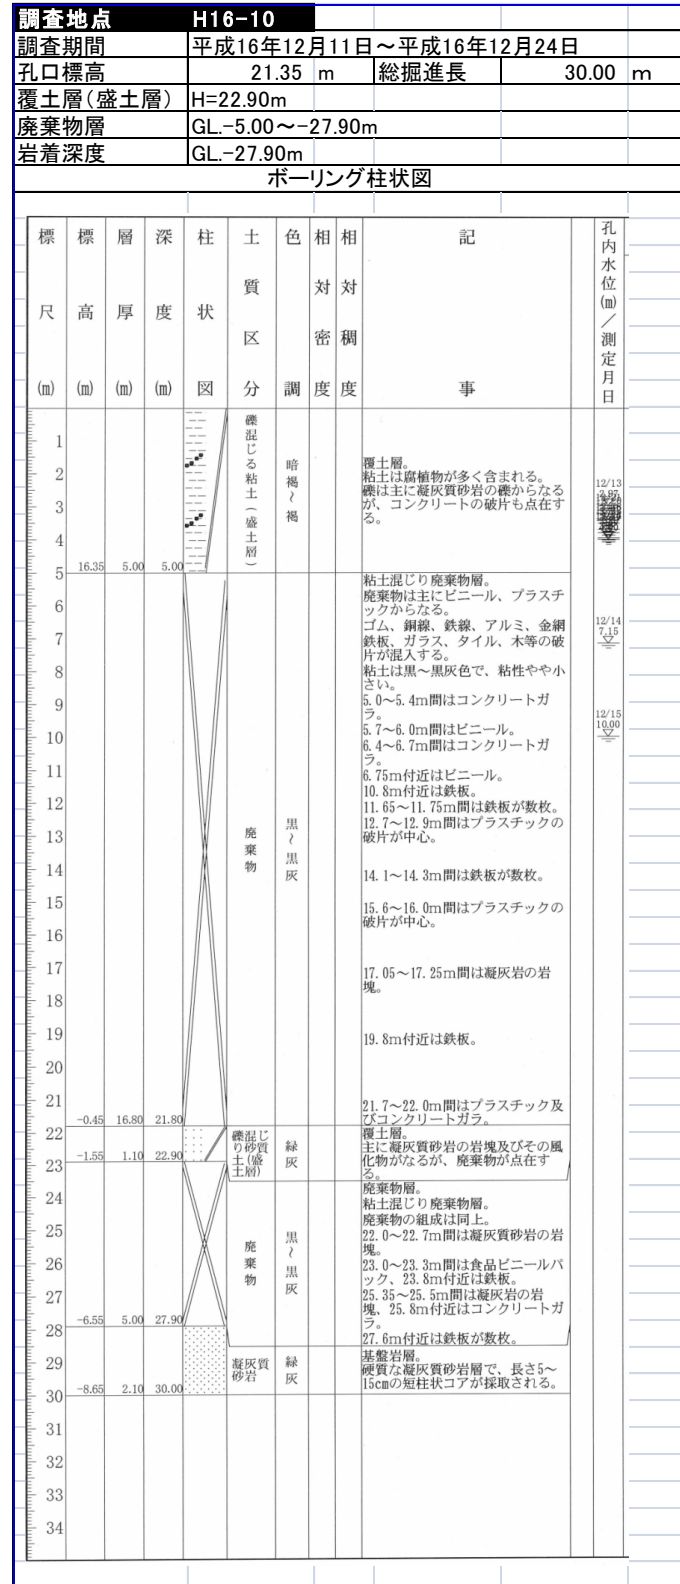 調査地点 H16-10
調査期間 平成16年12月11日～平成16年12月24日
孔口標高 21.35 m 総掘進長 30.00 m
覆土層(盛土層) H=22.90m
廃棄物層 GL.-5.00～-27.90m
岩着深度 GL.-27.90m
ボーリング柱状図
標尺(m) 標高(m) 層厚(m) 深度(m) 柱状図 土質区分 色調 相対密度 相対稠度 記事 孔内水位(m)／測定月日
1
2
3
4
5
6
7
8
9
10
11
12
13
14
15
16
17
18
19
20
21
22
23
24
25
26
27
28
29
30
31
32
33
34
16.35 5.00 5.00
礫混じる粘土(盛土層)
暗褐～褐
覆土層。
粘土は腐植物が多く含まれる。
礫は主に凝灰質砂岩の礫からなる
が、コンクリートの破片も点在す
る。
12/13
-0.45 16.80 21.80
廃棄物
黒～黒灰
粘土混じり廃棄物層。
廃棄物は主にビニール、プラスチ
ックからなる。
ゴム、銅線、鉄線、アルミ、金網
鉄板、ガラス、タイル、木等の破
片が混入する。
粘土は黒～黒灰色で、粘性やや小
さい。
5.0～5.4m間はコンクリートガ
ラ。
5.7～6.0m間はビニール。
6.4～6.7m間はコンクリートガ
ラ。
6.75m付近はビニール。
10.8m付近は鉄板。
11.65～11.75m間は鉄板が数枚。
12.7～12.9m間はプラスチックの
破片が中心。
14.1～14.3m間は鉄板が数枚。
15.6～16.0m間はプラスチックの
破片が中心。
17.05～17.25m間は凝灰岩の岩
塊。
19.8m付近は鉄板。
21.7～22.0m間はプラスチック及
びコンクリートガラ。
12/14
7.15
12/15
10.00
-1.55 1.10 22.90
礫混じ
り砂質
土(盛
土層)
緑灰
覆土層。
主に凝灰質砂岩の岩塊及びその風
化物がなるが、廃棄物が点在す
る。
-6.55 5.00 27.90
廃棄物
黒～黒灰
廃棄物層。
粘土混じり廃棄物層。
廃棄物の組成は同上。
22.0～22.7m間は凝灰質砂岩の岩
塊。
23.0～23.3m間は食品ビニールパ
ック、23.8m付近は鉄板。
25.35～25.5m間は凝灰岩の岩
塊、25.8m付近はコンクリートガ
ラ。
27.6m付近は鉄板が数枚。
-8.65 2.10 30.00
凝灰質
砂岩
緑灰
基盤岩層。
硬質な凝灰質砂岩層で、長さ5～
15cmの短柱状コアが採取される。